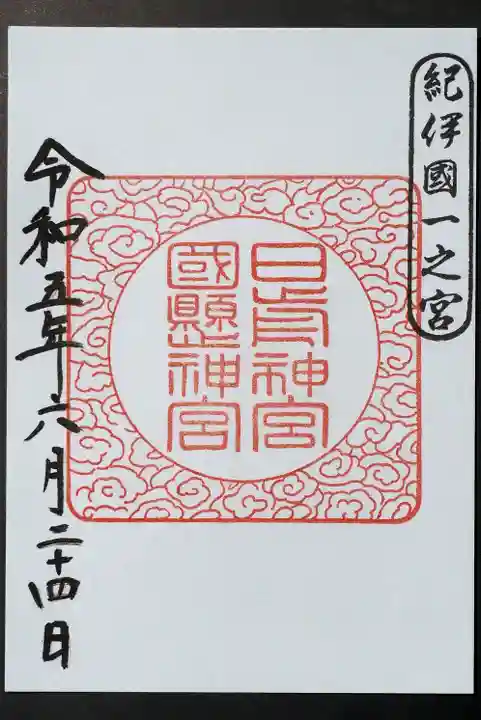 紀伊國一之宮
日前神宮
國懸神宮
令和五年六月二十四日